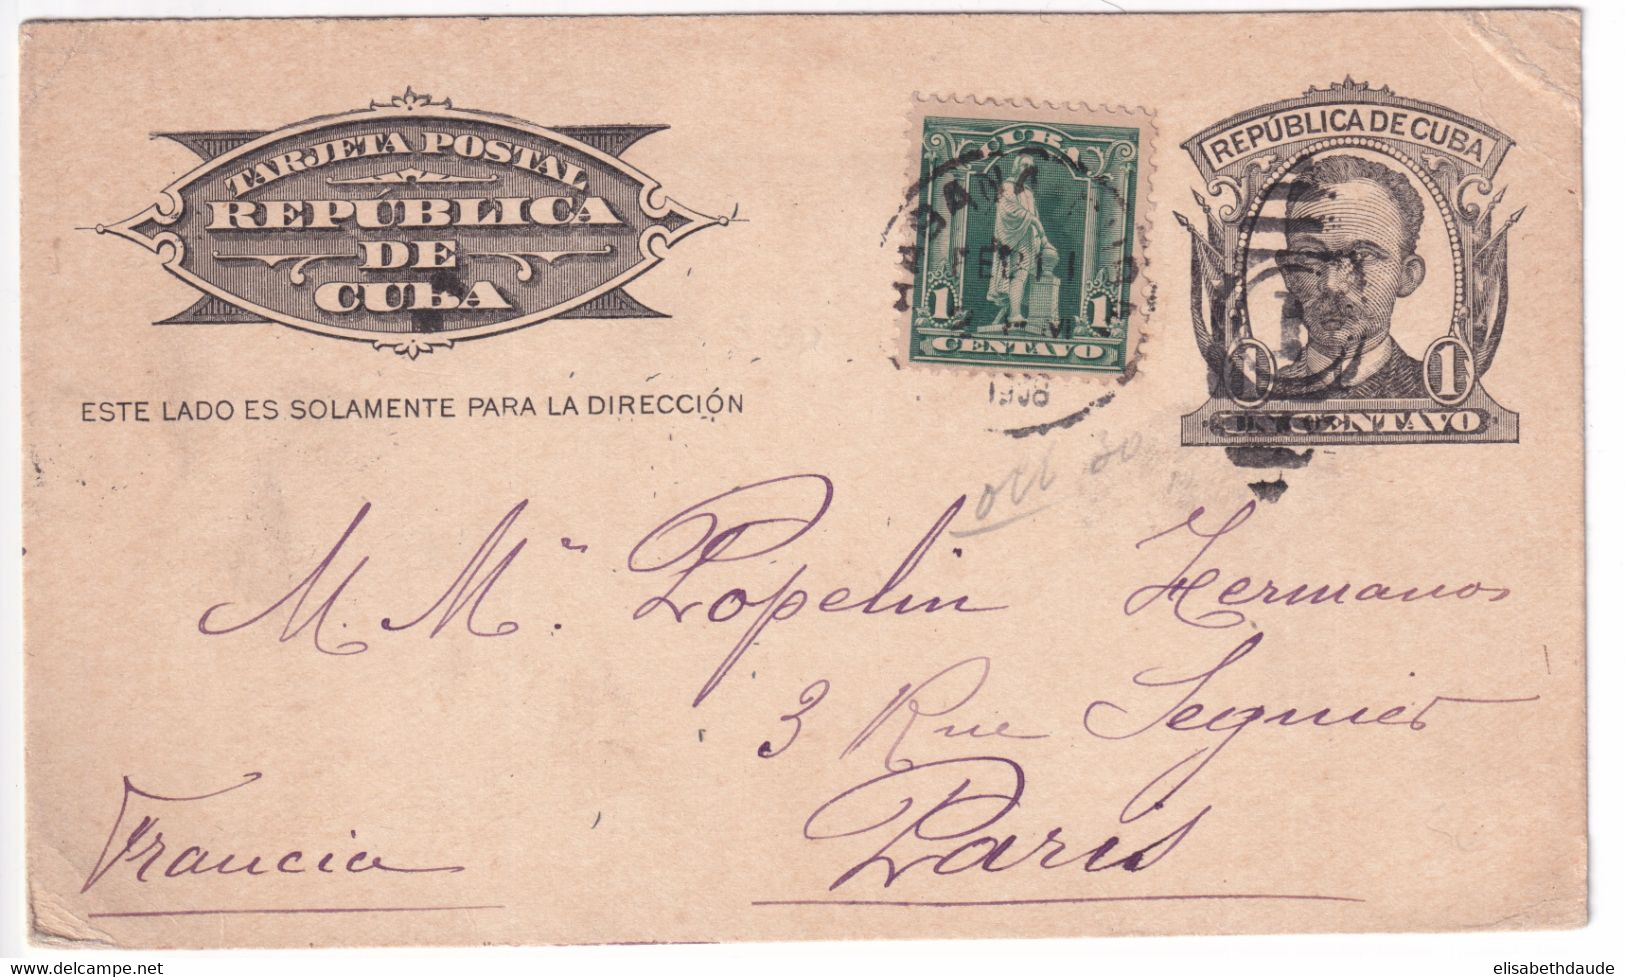 TARJETA POSTAL
REPÚBLICA
DE
CUBA
ESTE LADO ES SOLAMENTE PARA LA DIRECCIÓN
CUBA
HABANA
FEB 11
1 1
CENTAVO
1908
REPÚBLICA DE CUBA
1 1
UN CENTAVO
M. M.rs Popelin Hermanos
3 Rue Seguier
Paris
Francia
elisabethdaude